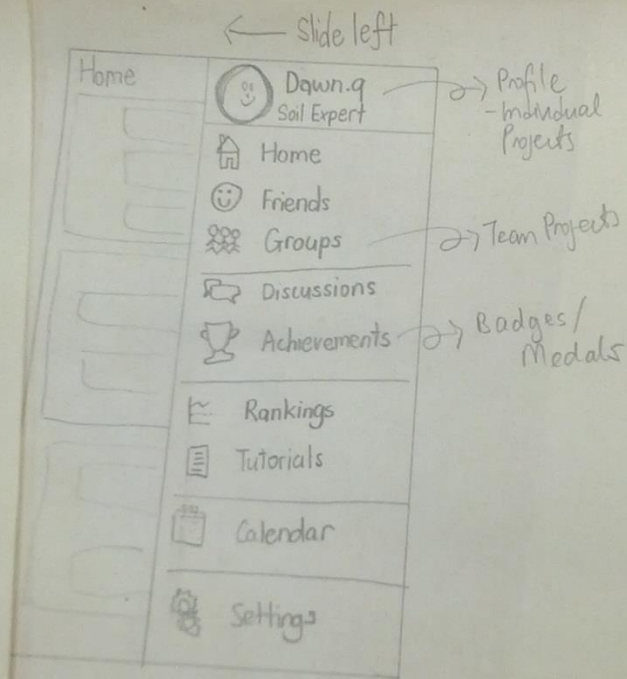 ← Slide left
Home
Dawn.q
Soil Expert
Profile
- Individual
Projects
Home
Friends
Groups
Team Projects
Discussions
Achievements
Badges/
Medals
Rankings
Tutorials
Calendar
Settings